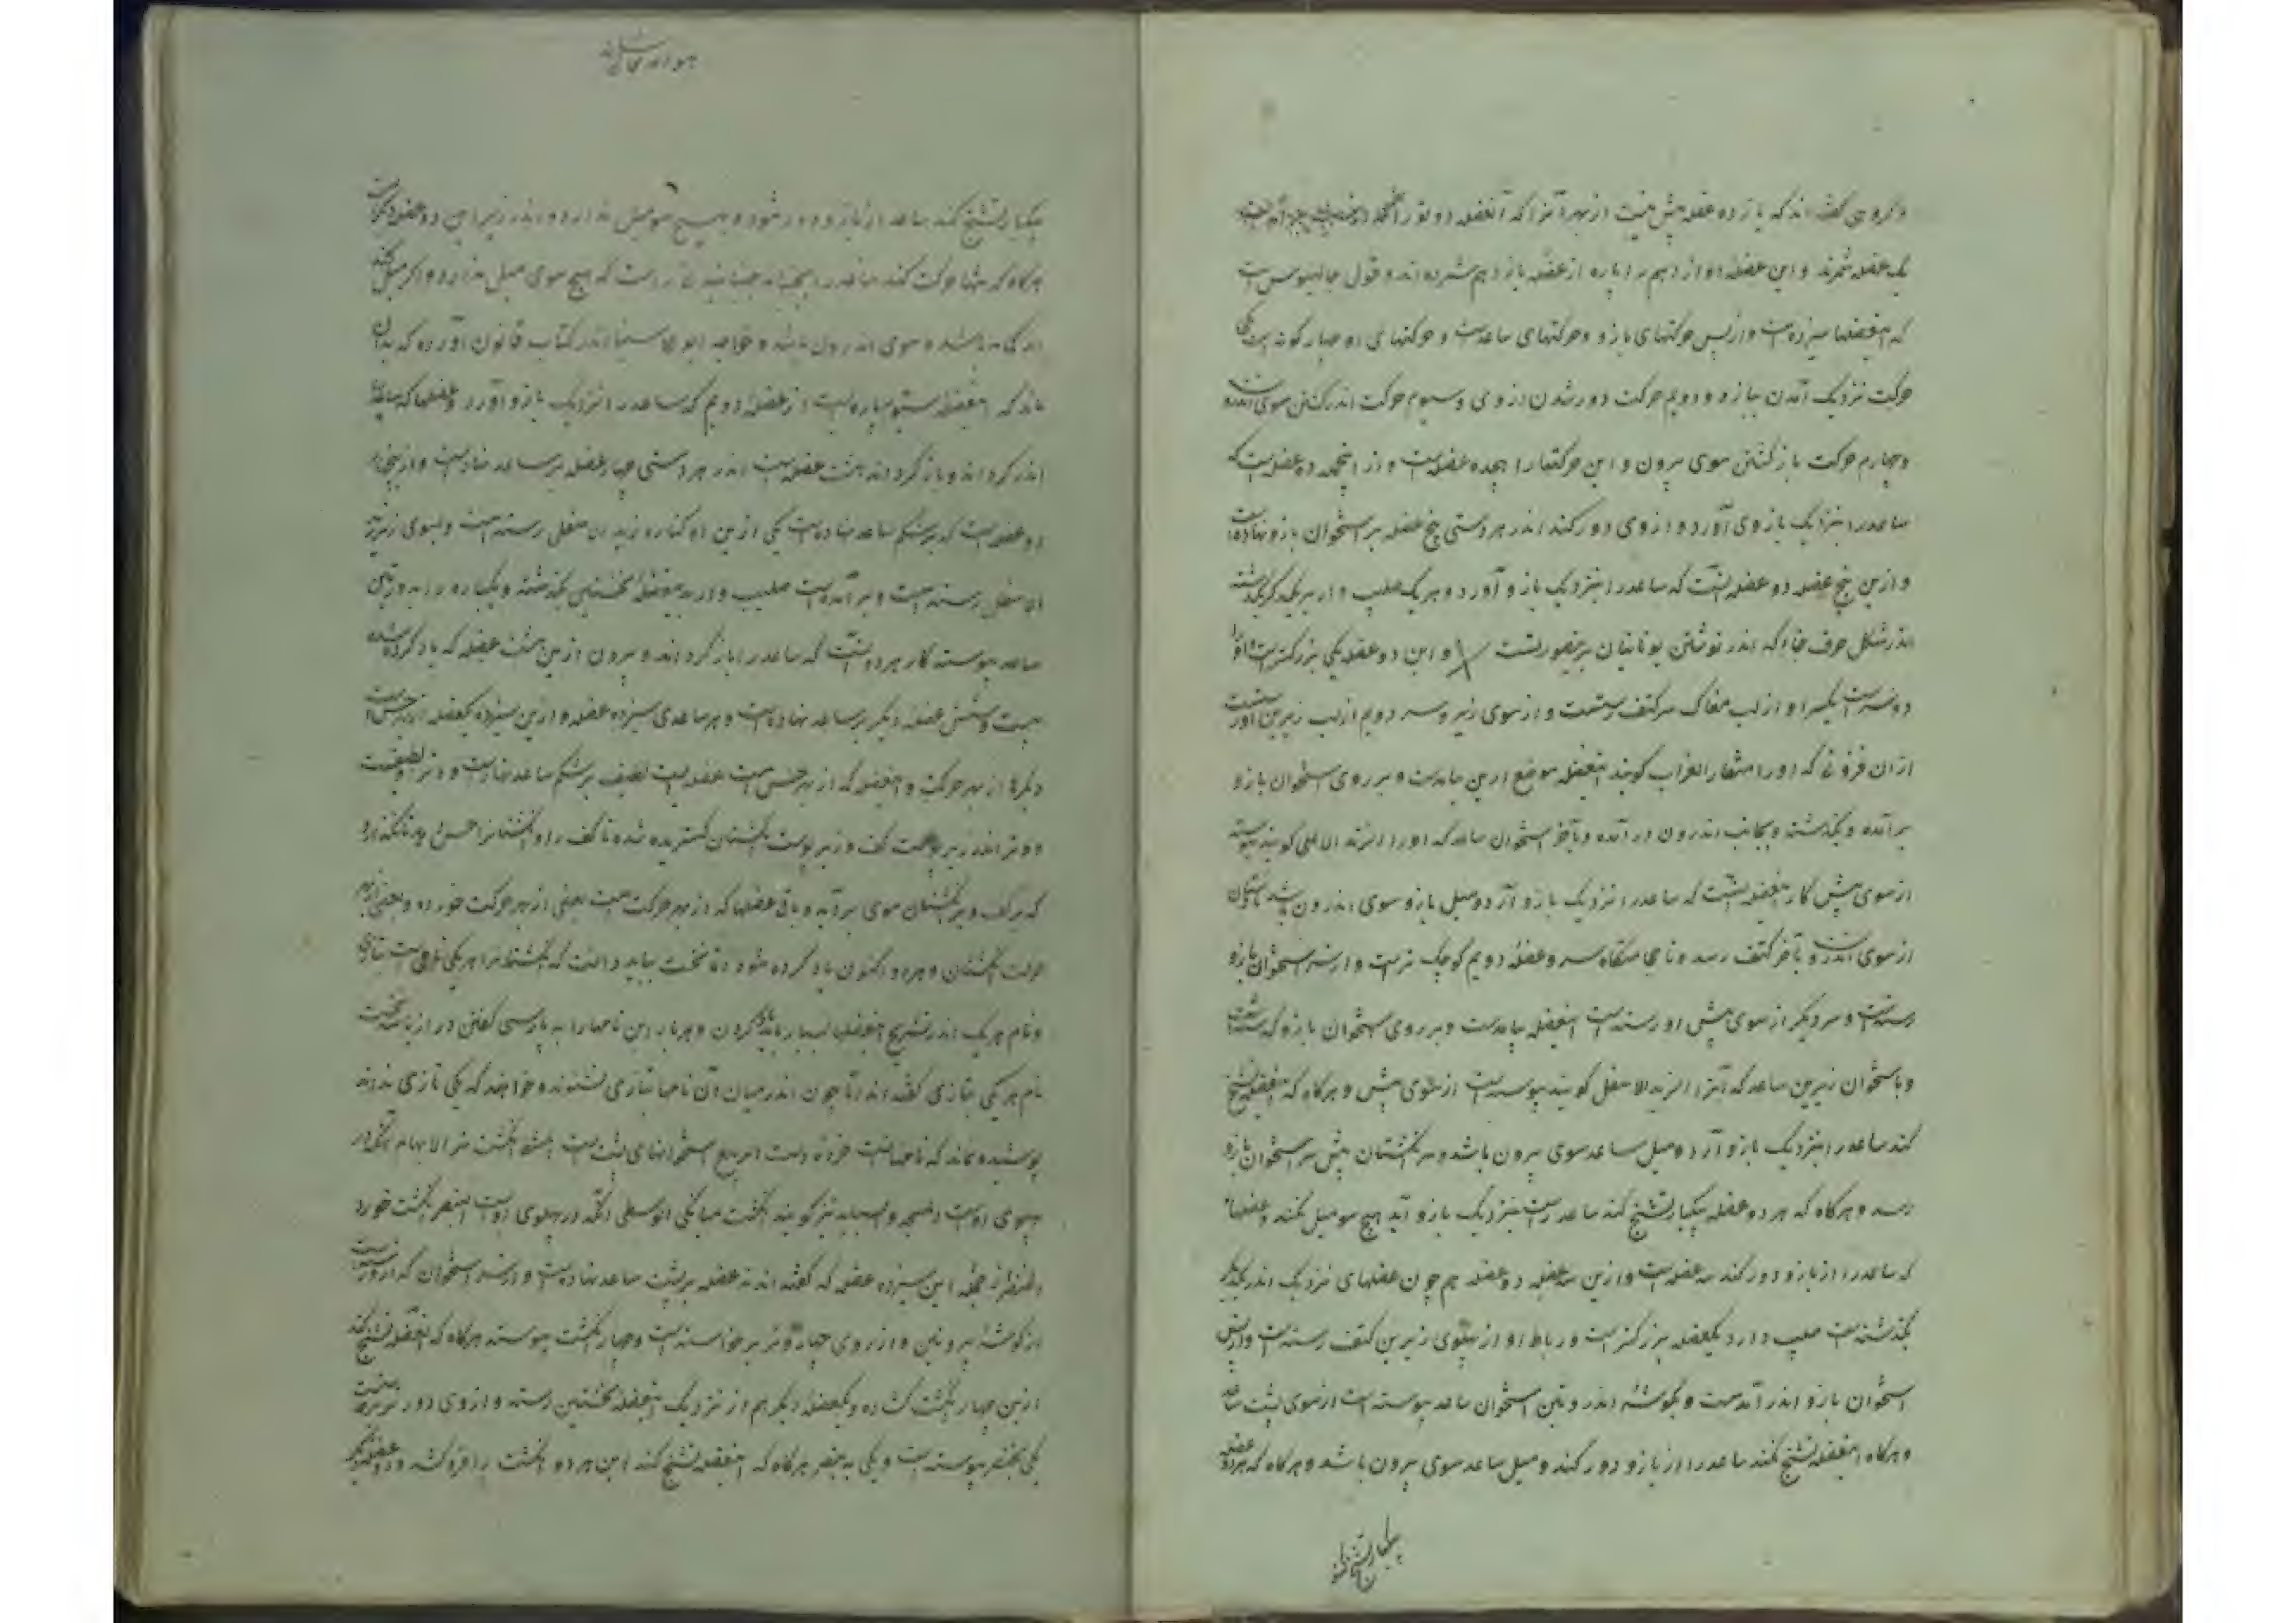 و گروهی گفته اند که یازده عضله بیش نیست از بهر آنرا که آنعضله دو تو را
یک عضله شمرند و این عضلهٔ دوازدهم را پاره از عضلهٔ یازدهم شمرده اند و قول جالینوس است
که اینعضلها سیزده است و از پس حرکتهای بازو و حرکتهای ساعدست و حرکتهای او چهار گونه است یکی
حرکت نزدیک آمدن ببازو و دویم حرکت دور شدن از وی و سیوم حرکت اندر گشتن سوی اندرون
و چهارم حرکت باز گشتن سوی بیرون و این حرکتها را هجده عضله است و از اینجمله ده عضله است که
ساعد را بنزدیک بازوی آورد و از وی دور کند اندر هر دستی پنج عضله بر استخوان بازو نهاده است
و ازین پنج عضله دو عضله آنست که ساعد را بنزدیک بازو آورد و هر یک صلیب وار بر یکدیگر گذشته
اندر شکل حرف خا که اندر نوشتن یونانیان برینصورتست و این دو عضله یکی بزرگترست و او را
دو سرست یکسر او از لب مغاک سر کتف رستست و از سوی زیر و سر دویم از لب زیرین او رستست
از آن فزونی که او را منقار الغراب گویند اینعضله موضع ازین بیامدست و بر روی استخوان بازو
بر آمده و بگذشته و بجانب اندرون در آمده و بآخر استخوان ساعد که او را الزند الاعلی گویند پیوسته
از سوی پیش کار اینعضله آنست که ساعد را نزدیک بازو آرد و میل بازو سوی اندرون باشد
از سوی اندرون تا سر کتف رسد و تا جایگاه سر و عضلهٔ دویم کوچک ترست و از سر استخوان بازو
رستست و سر دیگر از سوی پیش او رسته است اینعضله بیامدست و بر روی استخوان بازو گذشتست
و باستخوان زیرین ساعد که آنرا الزند الاسفل گویند پیوسته است از سوی پیش و هر گاه که اینعضله تشنج
کند ساعد را بنزدیک بازو آرد و میل ساعد سوی بیرون باشد و سر انگشتان پیش سر استخوان بازو
رسد و هر گاه که هر دو عضله بیکبار تشنج کند ساعد راست بنزدیک بازو آید هیچ سو میل نکند و عضلها
که ساعد را از بازو دور کند سه عضله است و ازین سه عضله دو عضله هم چون عضلهای نزدیک اندر یکدیگر
بگذشته است صلیب وار و یکعضله بزرگترست و رباط او از پهلوی زیرین کتف رسته است و از پس
استخوان بازو اندر آمدست و بگوشهٔ اندرونین استخوان ساعد پیوسته است از سوی پشت ساعد
و هر گاه اینعضله تشنج کند ساعد را از بازو دور کند و میل ساعد سوی بیرون باشد و هر گاه که هر دو عضله
بیکبار تشنج کند
بیکبار تشنج کند ساعد از بازو دور شود و هیچ سو میل ندارد و اندر زیر این دو عضله دیگرست
هر گاه که تنها حرکت کند ساعد را بجنباند جنبانیدنی راست که هیچ سوی میل ندارد و اگر میل کند
اندکی باشد و سوی اندرون باشد و خواجه ابو علی سینا اندر کتاب قانون آورده که بدان
ماند که اینعضله سیوم پاره است از عضلهٔ دویم که ساعد را نزدیک بازو آورد و عضلها که ساعد را
اندر گرداند و باز گرداند هشت عضله است اندر هر دستی چهار عضله بر ساعد نهادست و از پنج
دو عضله است که بر شکم ساعد نهادست یکی ازین دو کناره زند اسفل رسته است و بسوی زیر تر
الاسفل رسته است و بر آمده است صلیب وار بر عضلهٔ نخستین بگذشته و یکباره
ساعد پیوسته کار هر دو آنست که ساعد را باز گرداند و بیرون ازین هشت عضله که یاد کرده شد
بیست و شش عضله دیگر بر ساعد نهادست و هر ساعدی سیزده عضله و ازین سیزده یکعضله از بهر حس است
دیگرها از بهر حرکت و اینعضله که از بهر حس است عضله ایست لطیف بر شکم ساعد نهادست و وتر او لطیفست
و وتر اندر زیر پوست کف و زیر پوست انگشتان گستریده شده تا کف را و انگشتانرا حس
که بر کف و بر انگشتان موی بر آید و باقی عضلها که از بهر حرکت است بعضی از بهر حرکت خورده و بعضی از بهر
حرکت انگشتان و هر دو اکنون یاد کرده شود اما نخست بباید دانست که انگشتانرا هر یکی نامی است بتازی
و نام هر یک اندر تشریح اینعضلها بسیار باید یاد کردن و هر بار این نامها را به پارسی گفتن دراز باشد نخست
نام هر یکی بتازی گفته اند تا چون اندر میان آن نامها بتازی بشنوند و خوانند که یکی تازی نداند
پوشیده نماند که نامهاست خرده دست الرسغ استخوانهای پشت دست المشط انگشت نر الابهام انگ در
پهلوی اوست السبحه و السبابه نیز گویند انگشت میانگی الوسطی آنگه در پهلوی اوست البنصر انگشت خورد
الخنصر از جمله این سیزده عضله که گفته اند نه عضله بر پشت ساعد نهادست و از سر استخوان که از ورست
از گوشهٔ بیرونین و از روی چهار وتر بر خواسته است و چهار انگشت پیوسته هر گاه که اینعضله تشنج کند
ازین چهار انگشت گشاده و یکعضلهٔ دیگر هم از نزدیک اینعضله نخستین رسته و از وی دو وتر رسته است
یکی بخنصر پیوسته است و یکی به بنصر هر گاه که اینعضله تشنج کند این هر دو انگشت را فرو کشد و دو عضلهٔ دیگر